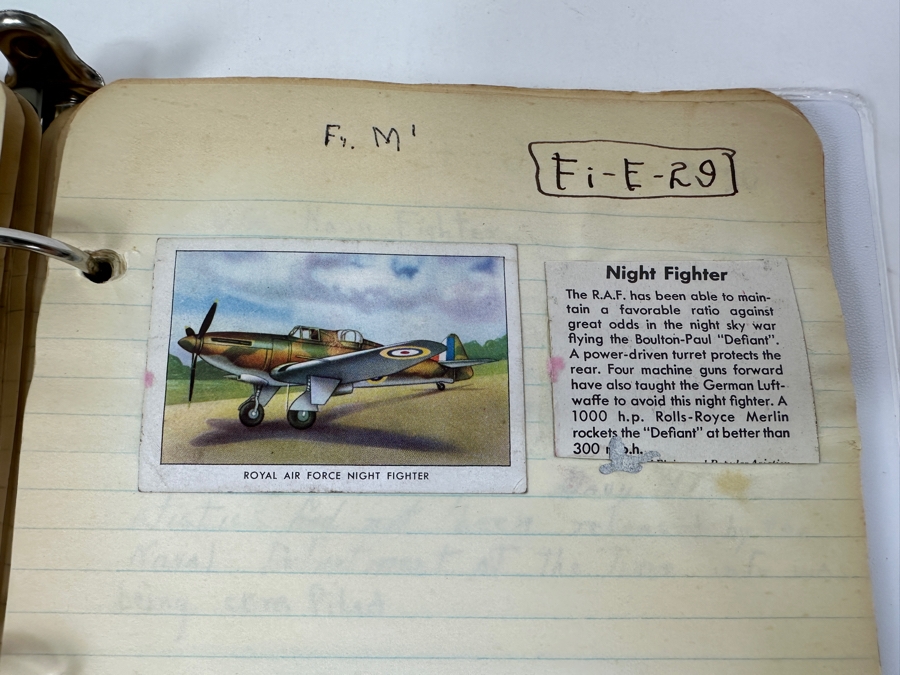 Fr. M'
Fi-E-29
ROYAL AIR FORCE NIGHT FIGHTER
Night Fighter
The R.A.F. has been able to main-
tain a favorable ratio against
great odds in the night sky war
flying the Boulton-Paul "Defiant".
A power-driven turret protects the
rear. Four machine guns forward
have also taught the German Luft-
waffe to avoid this night fighter. A
1000 h.p. Rolls-Royce Merlin
rockets the "Defiant" at better than
300 m.p.h.
being compiled